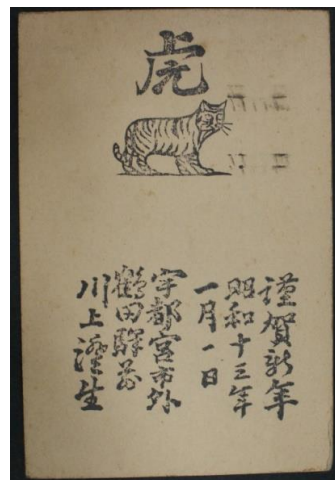 虎
謹賀新年
昭和十三年
一月一日
宇都宮市外
鶴田駅前
川上澄生